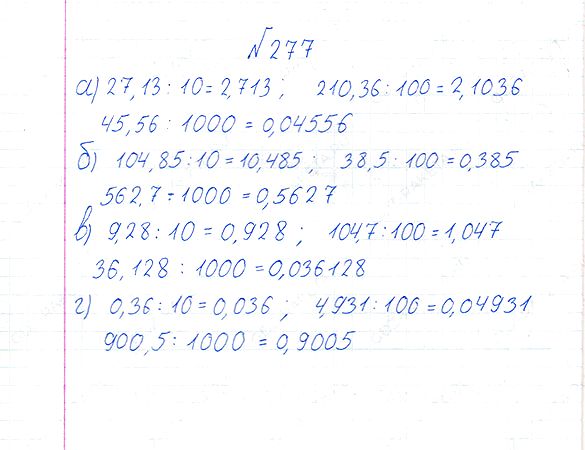 №277
а) 27,13 : 10 = 2,713 ; 210,36 : 100 = 2,1036
45,56 : 1000 = 0,04556
б) 104,85 : 10 = 10,485 , 38,5 : 100 = 0,385
562,7 : 1000 = 0,5627
в) 9,28 : 10 = 0,928 ; 104,7 : 100 = 1,047
36,128 : 1000 = 0,036128
г) 0,36 : 10 = 0,036 ; 4,931 : 100 = 0,04931
900,5 : 1000 = 0,9005